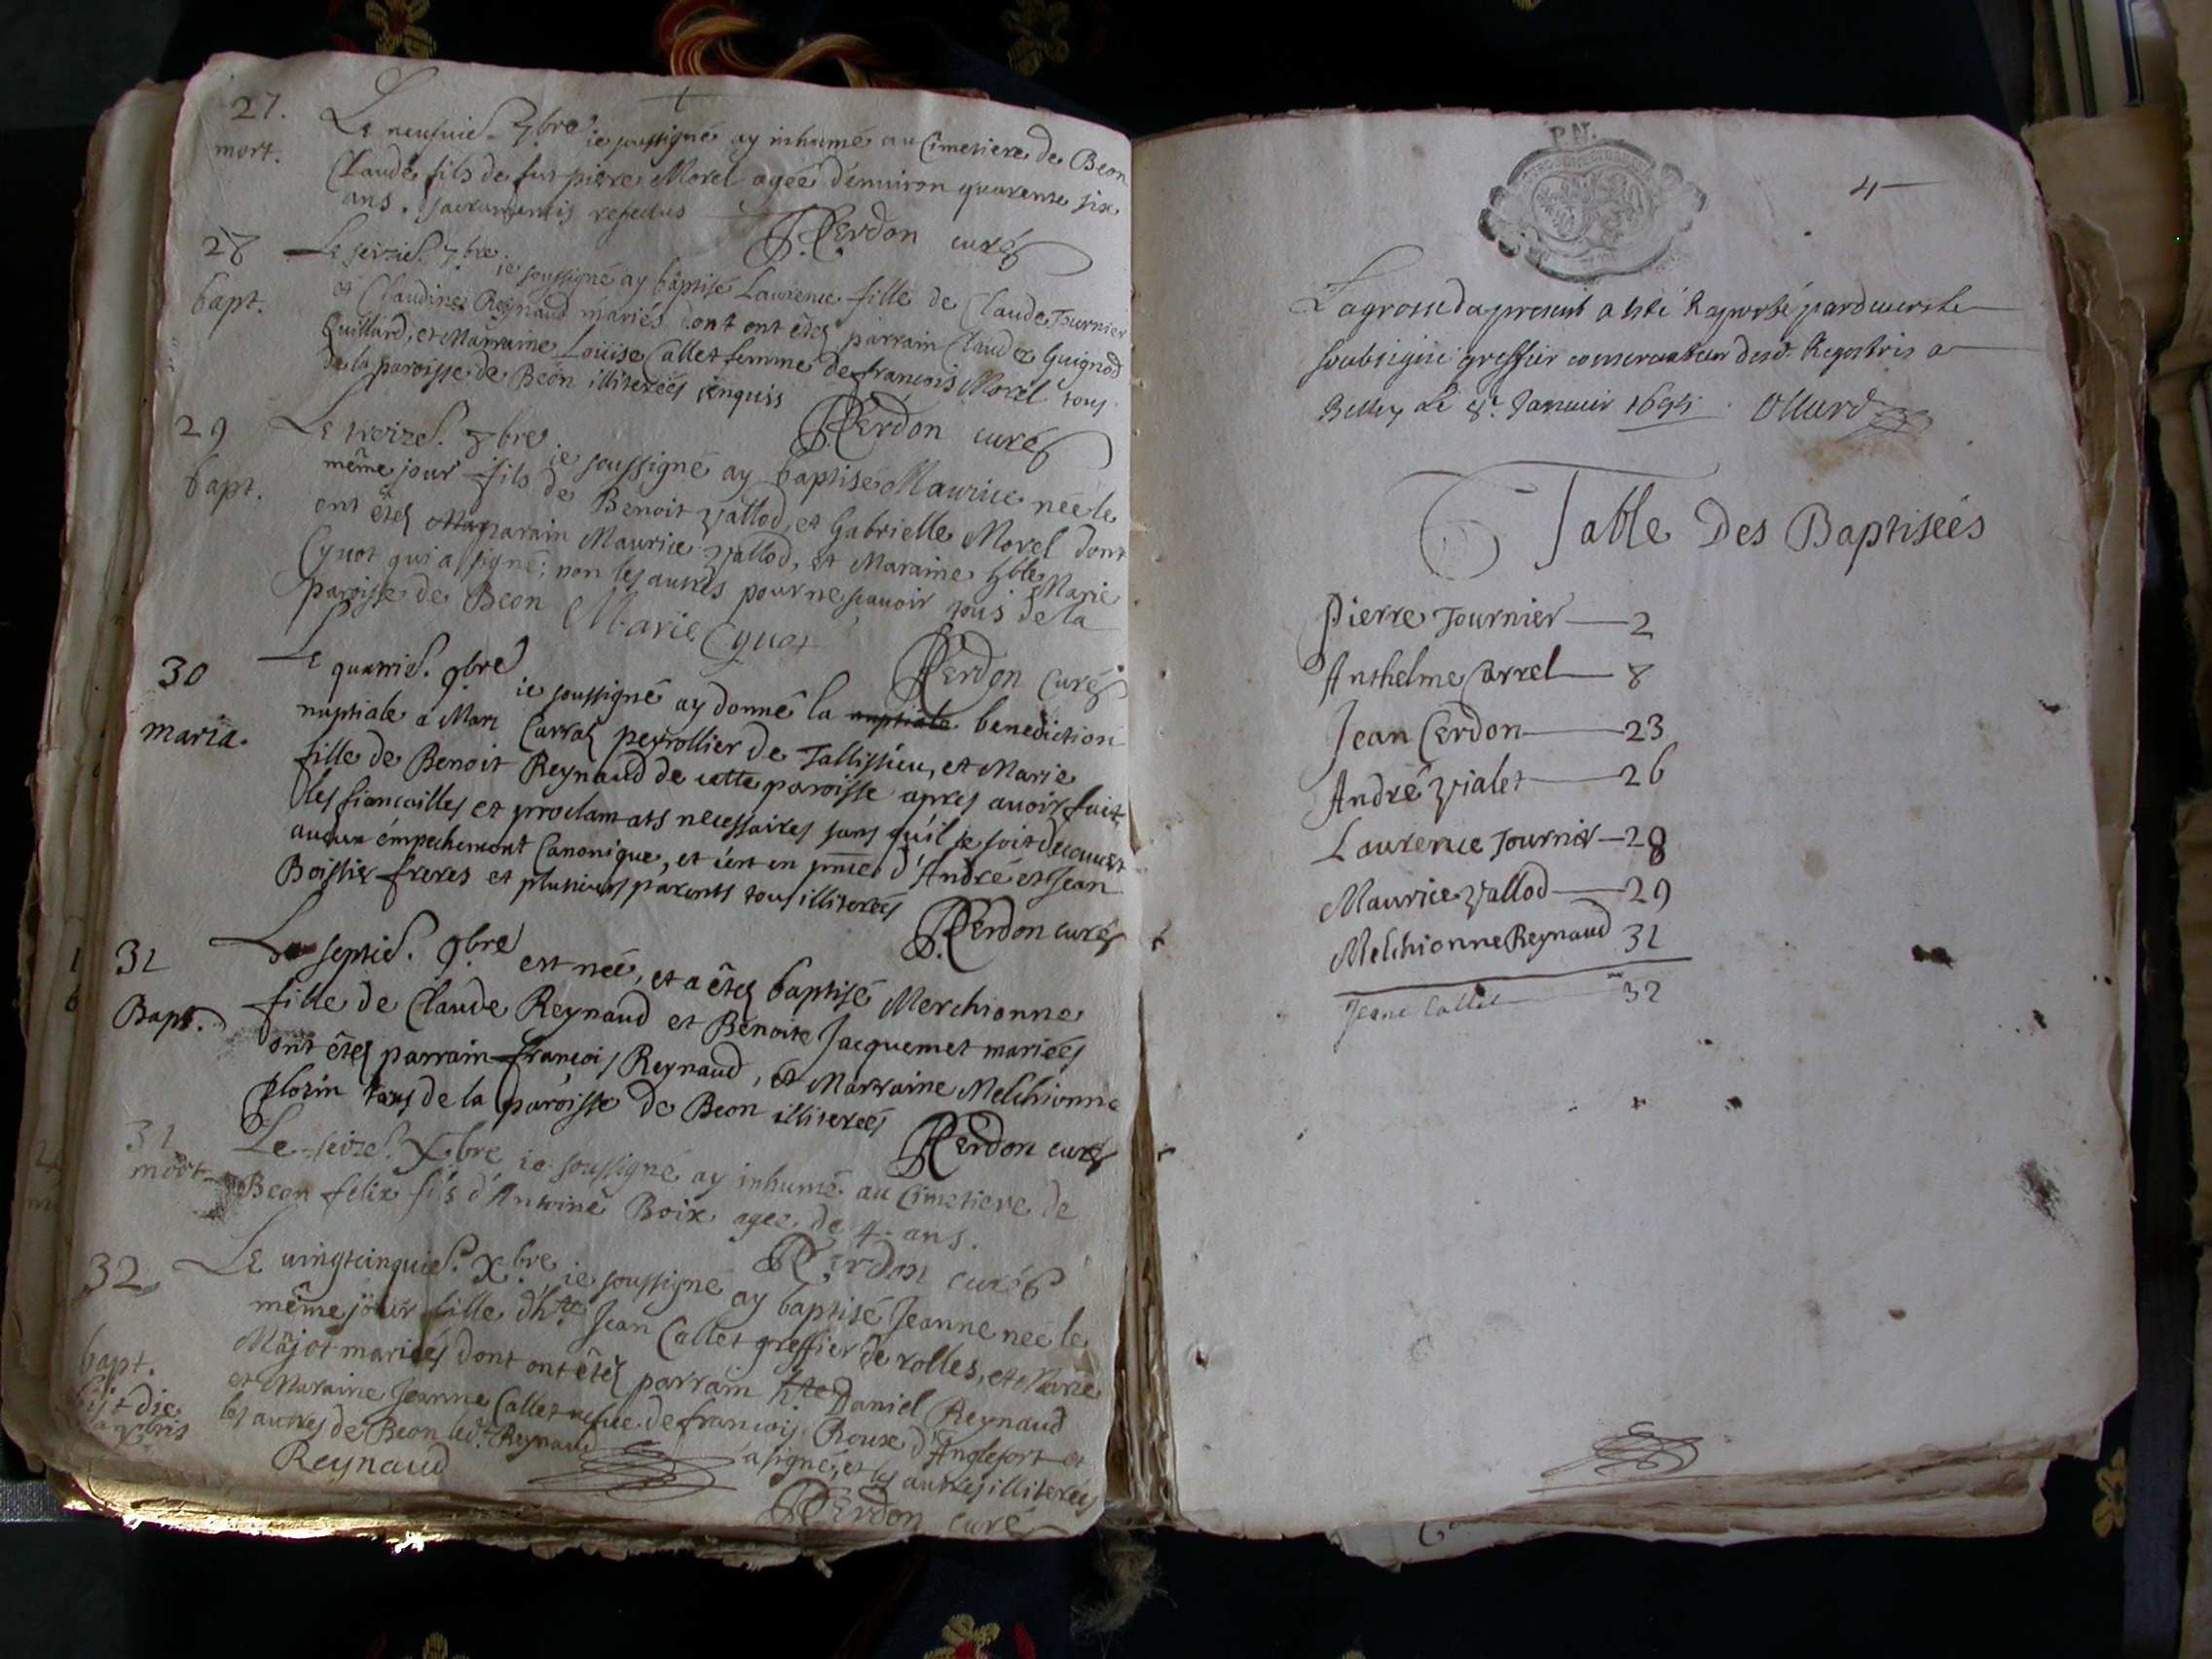 27.
mort.
Le neufvie. 7.bre ie soussigné ay inhumé au Cimetiere de Beon
Claude fils de fut pierre Morel agée d'enuiron quarente six
ans. sacramentis refectus
P. Cerdon curé
28
bapt.
Le seizie. 7.bre. ie soussigné ay baptisé Laurence fille de Claude Tournier
et Claudine Reynaud mariés dont ont étez parrain Claude Guignod
Quillard, et Marraine Loüise Callet femme de francois Morel tous
de la paroisse de Beon illiterées enquis
P. Cerdon curé
29
bapt.
Le treize. 8bre. ie soussigné ay baptisé Maurice née le
même jour fils de Benoit Vallod, et Gabrielle Morel dont
ont étez parain Maurice Vallod, et Maraine hble Marie
Cyuot qui a signé; non les autres pour ne sçauoir tous de la
paroisse de Beon
Marie Cyuot
P. Cerdon Curé
30
maria.
Le quatrie. 9.bre ie soussigné ay donné la nuptiale benediction
nuptiale a Marc Carraz peyrollier de Tallissieu, et Marie
fille de Benoit Reynaud de cette paroisse apres auoir fait
les fiancailles et proclamats necessaires sans qu'il se soit decouuert
aucun émpechement Canonique, et c'ent en pnce d'André et Jean
Boissier freres et plusieurs parents tous illiterées
P. Cerdon curé
31
Bapt.
Le septie. 9.bre est née, et a étez baptisé Merchionne
fille de Claude Reynaud et Benoite Jacquemet mariées
ont étez parrain francois Reynaud, et Marraine Melchionne
plozin tous de la paroisse de Beon illiterées
P. Cerdon curé
31
mort
Le seize. Xbre ie soussigné ay inhumé au Cimetiere de
Beon felix fils d'Antoine Boix agee de 4 ans.
P. Cerdon curé
32
bapt.
Le vingtcinquie. X.bre ie soussigné ay baptisé Jeanne née le
même jour fille d'h.te Jean Callet greffier de rolles, et Marie
Majot mariées dont ont étez parrain h.te Daniel Reynaud
et Maraine Jeanne Callet vefue de francois Roux d'Anglefort et
les autres de Beon led.t Reynaud a signé, et les autres illiterées
Reynaud
P. Cerdon curé
P.N.
4
La grosse da present a esté Raporté pard
soubsigné greffier conseruateur desd. Registres a
Belley Le 8.e Januier 169 Ollard
Table Des Baptisées
Pierre Tournier 2
Anthelme Carrel 8
Jean Cerdon 23
André Vialet 26
Laurence Tournier 28
Maurice Vallod 29
Melchionne Reynaud 31
Jeane Callet 32